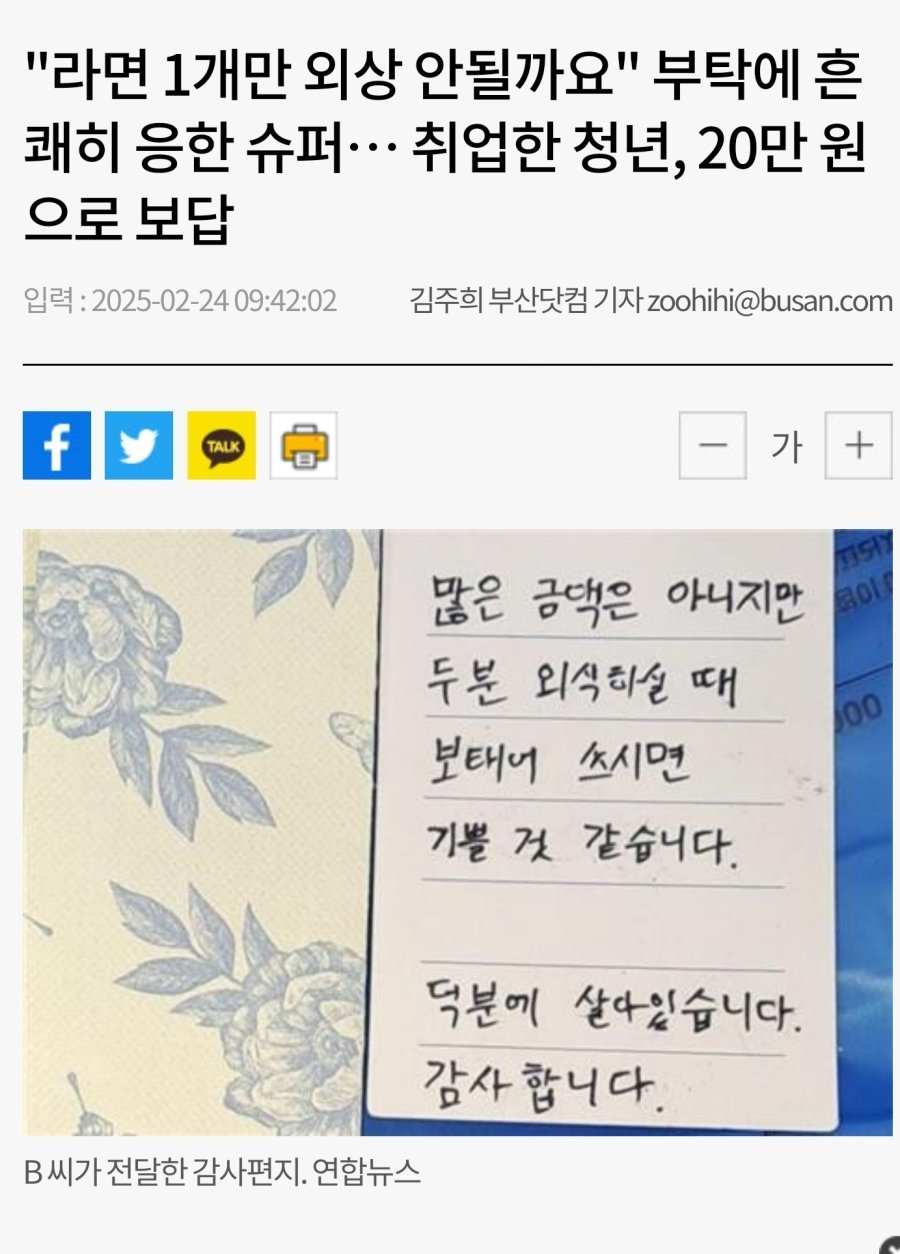 "라면 1개만 외상 안될까요" 부탁에 흔
쾌히 응한 슈퍼… 취업한 청년, 20만 원
으로 보답
입력 : 2025-02-24 09:42:02 김주희 부산닷컴 기자 zoohihi@busan.com
f TALK 가
많은 금액은 아니지만
두분 외식하실 때
보태어 쓰시면
기쁠 것 같습니다.
덕분에 살아있습니다.
감사합니다.
B 씨가 전달한 감사편지. 연합뉴스